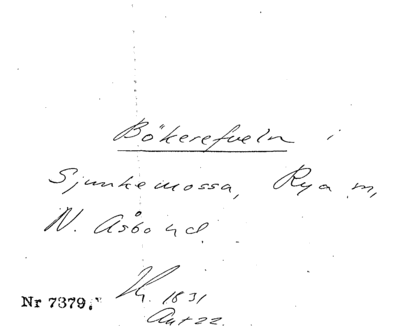 Bökerefveln i
Sjunkemossa, Rya m,
N. Åsbo hd.
1831
Akt 22.
Nr 7379.